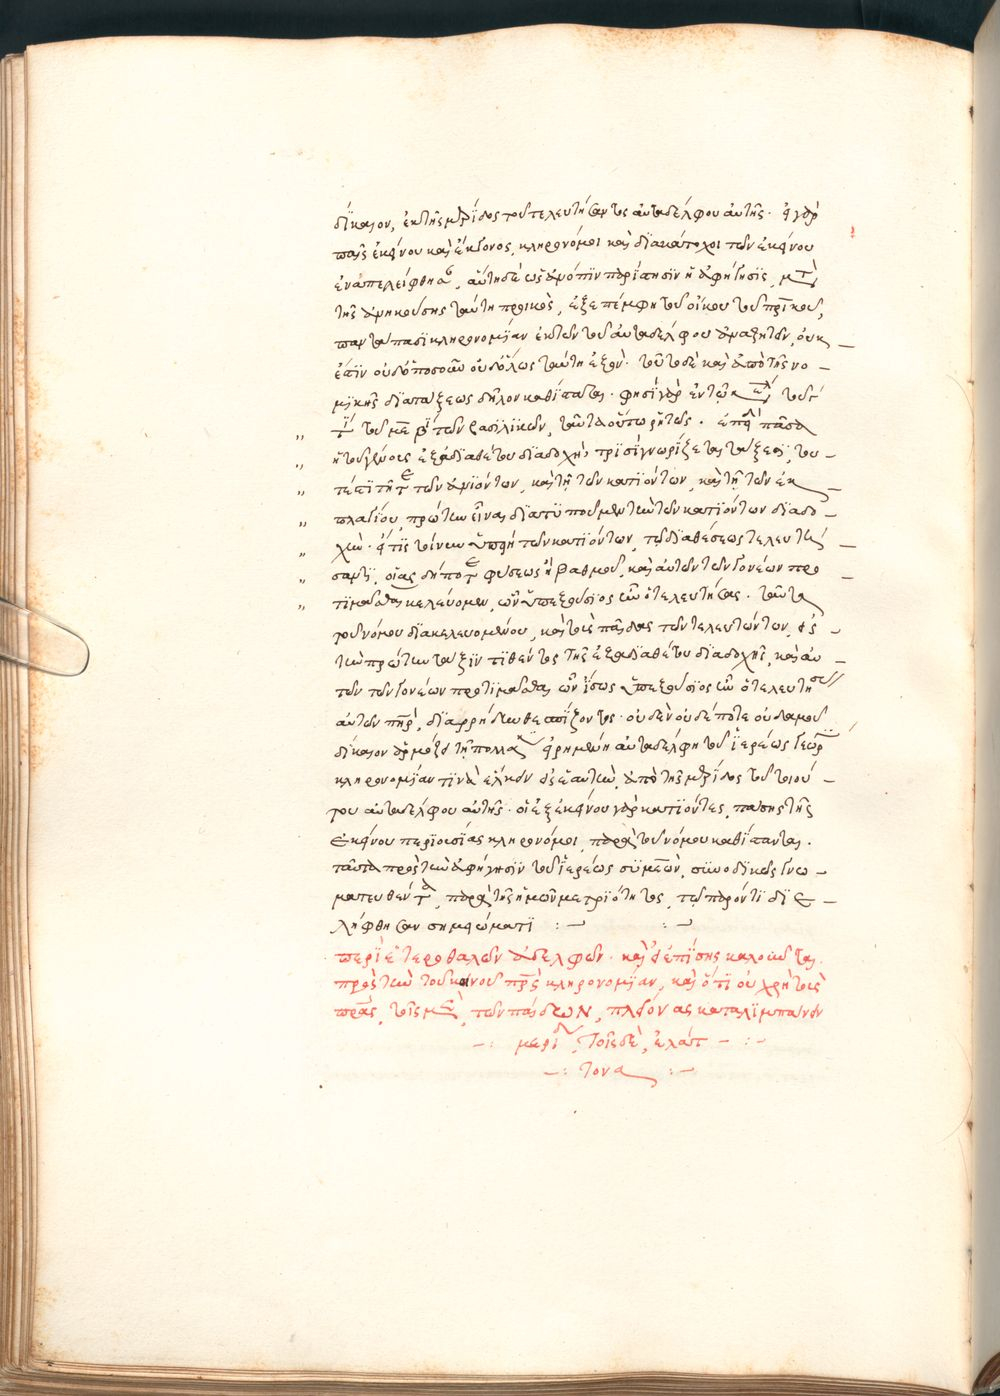 δίκαιον, ἐκ τῆς μερίδος τοῦ τελευτήσαντος αὐταδέλφου αὐτῆς· εἰ γὰρ
παῖς ἐκείνου καὶ ἔκγονος, κληρονόμοι καὶ διακάτοχοι τῶν ἐκείνου
ἐναπελείφθησαν, αὕτη δὲ ὡς ἀνόπιν ἡ ἀφήγησις, μετὰ
τῆς ἀνηκούσης ταύτη προικὸς, ἐξεπέμφη τοῦ οἴκου τοῦ πατρικοῦ,
παντάπασι κληρονομίαν ἐκ τῶν τοῦ αὐταδέλφου ἀναζητεῖν, οὐκ
ἔστιν οὐδ' ὁποσοῦν οὐδ' ὅλως ταύτη ἐξὸν· τοῦτο δὲ καὶ ἀπὸ τῆς νο
μικῆς διατάξεως δῆλον καθίσταται· φησὶ γὰρ ἐν τῷ κεφαλαίῳ τοῦ
τοῦ με βι τῶν βασιλικῶν, ταῦτα οὕτω ῥητῶς· ἐπεὶ πᾶσα
ἡ τοῦ γένους ἐξ ἀδιαθέτου διαδοχὴ, τρισὶ γνωρίζεται τάξεσι, του
τέστι τῆτε τῶν ἀνιόντων, καὶ τῆ τῶν κατιόντων, καὶ τῆ τῶν ἐκ
πλαγίου, πρώτην εἶναι διατυποῦμεν τὴν τῶν κατιόντων διαδο
χὴν· εἴ τις τοίνυν ὑπείη τῶν κατιόντων, τῷ διαθέσεως τελευτή
σαντι, οἵας δήποτε φύσεως ἢ βαθμοῦ, καὶ αὐτῶν τῶν γονέων προ
τιμᾶσθαι κελεύομεν, κἂν ὑπεξούσιος ἦν ὁ τελευτήσας· ταῦτα
τοῦ νόμου διακελευομένου, καὶ τοὺς παῖδας τῶν τελευτώντων, εἰς
τὴν πρώτην τάξιν τιθέντος τῆς ἐξ ἀδιαθέτου διαδοχῆς, καὶ αὐ
τῶν τῶν γονέων προτιμᾶσθαι κἂν ἴσως ὑπεξούσιος ἦν ὁ τελευτήσας
αὐτῶν πατὴρ, διαρρήδην θεσπίζοντος· οὐδὲν οὐδέποτε οὐδαμοῦ
δίκαιον ἁρμόζει τῆ πολλάκις εἰρημένη αὐταδέλφη τοῦ ἱερέως γεωρ
κληρονομίαν τινὰ ἕλκειν εἰς ἑαυτὴν, ἀπὸ τῆς μερίδος τοῦ τοιού
του αὐταδέλφου αὐτῆς· οἱ ἐξ ἐκείνου γὰρ κατιόντες, πάσης τῆς
ἐκείνου περιουσίας κληρονόμοι, παρὰ τοῦ νόμου καθίστανται.
ταῦτα πρὸς τὴν ἀφήγησιν τοῦ ἱερέως συμεὼν, συνοδικῶς γνω
ματευθέντα, παρὰ τῆς ἡμῶν μετριότητος, τῷ παρόντι διε
λήφθησαν σημειώματι :– :–
περὶ ἑτεροθαλῶν ἀδελφῶν· καὶ εἰ ἐπίσης καλοῦνται
πρὸς τὴν τοῦ κοινοῦ πατρὸς κληρονομίαν, καὶ ὅτι οὐ χρὴ τοὺς
πατέρας, τοῖς μὲν, τῶν παίδων, πλείονας καταλιμπάνειν
–: μερίδας, τοῖς δὲ, ἐλάτ – :–
–: τονα :–